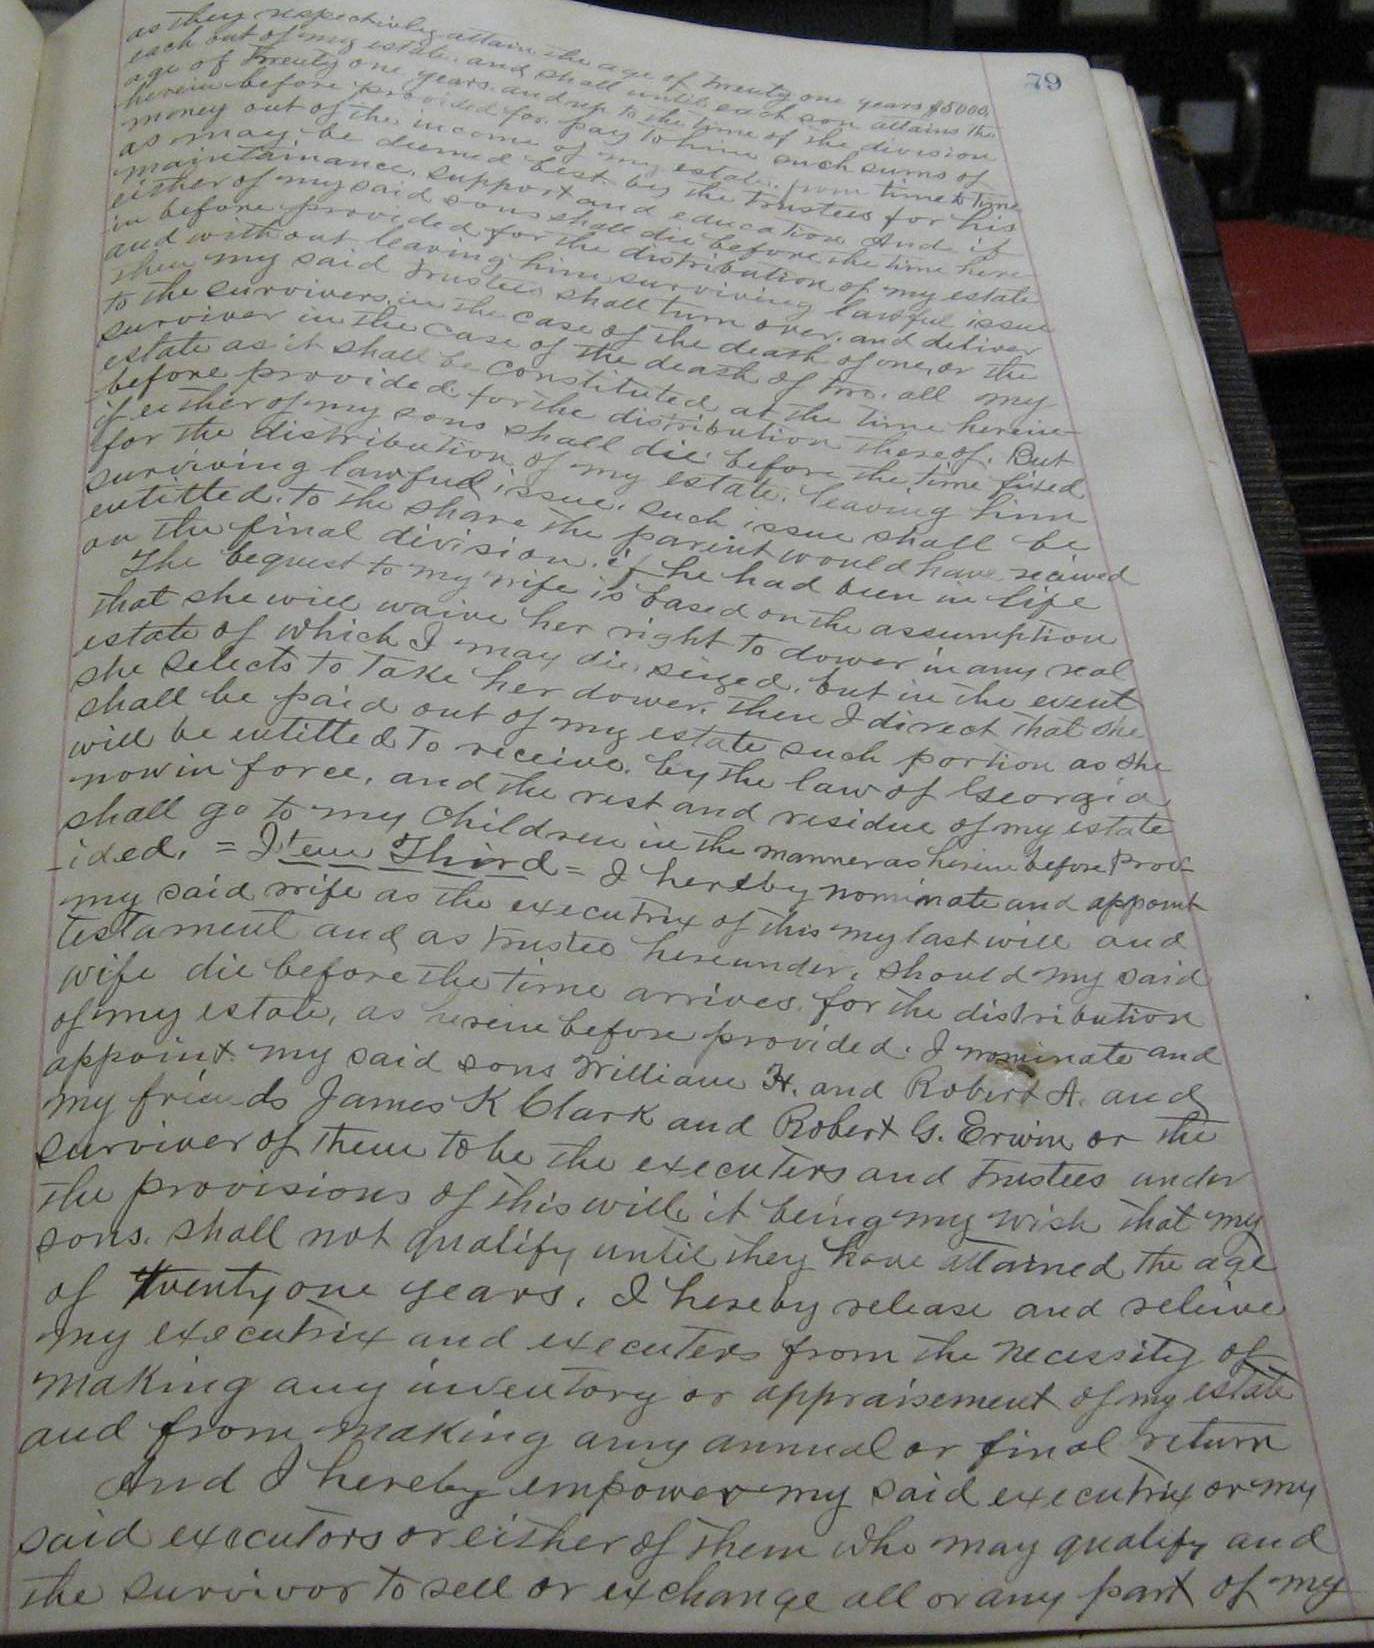 79
as they respectively attain the age of twenty one years $5000.
each out of my estate. and shall until each son attains the
age of twenty one years. and up to the time of the division
herein before provided for. pay to him such sums of
money out of the income of my estate. from time to time
as may be deemed best by the trustees for his
maintainance, support and education And if
either of my said sons shall die before the time here
in before provided for the distribution of my estate
and without leaving him surviving lawful issue
then my said trustees shall turn over. and deliver
to the survivers. in the case of the death of one, or the
surviver in the case of the death of two. all my
estate as it shall be constituted at the time herein-
before provided. for the distribution thereof. But
if either of my sons shall die. before the time fixed
for the distribution of my estate. leaving him
surviving lawful issue. such issue shall be
entitled. to the share the parent would have recieved
on the final division. if he had been in life
The bequest to my wife is based on the assumption
that she will waive her right to dower in any real
estate of which I may die seized. but in the event
she selects to take her dower. then I direct that she
shall be paid out of my estate such portion as she
will be entitled to receive. by the law of Georgia
now in force. and the rest and residue of my estate
shall go to my children in the manner as herein before prov-
ided. = Item Third = I hereby nominate and appoint
my said wife as the executrix of this my last will and
testament and as trustee hereunder. should my said
wife die before the time arrives. for the distribution
of my estate, as herein before provided. I nominate and
appoint my said sons William H. and Robert A. and
my friends James K Clark and Robert G. Erwin or the
surviver of them to be the executers and trustees under
the provisions of this will. it being my wish that my
sons. shall not qualify until they have attained the age
of twenty one years. I hereby release and releive
my executrix and executers from the necessity of
making any inventory or appraisement of my estate
and from making any annual or final return
And I hereby empower my said executrix or my
said executors or either of them who may qualify and
the survivor to sell or exchange all or any part of my